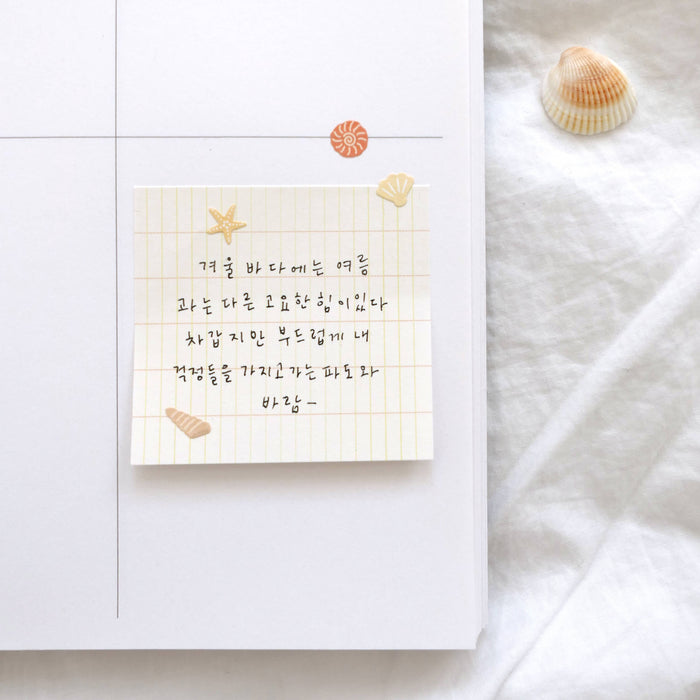 겨울 바다에는 여름
과는 다른 고요한 힘이 있다
차갑지만 부드럽게 내
걱정들을 가지고 가는 파도와
바람-